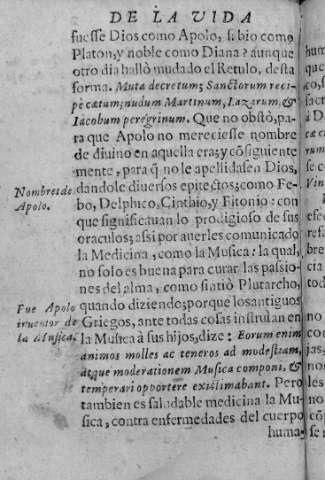 DE LA VIDA
fuesse Dios como Apolo, sabio como
Platon; y noble como Diana? aunque
otro dia hallò mudado el Retulo, desta
forma. Muta decretum; Sanctorum reci-
pè cætum; nudum Martinum, Lazarum, &
Iacobum peregrinum. Que no obstò, pa-
ra que Apolo no mereciesse nombre
de diuino en aquella era; y cõsiguiente
mente, para q̃ no le apellidasen Dios,
Nombres de
Apolo.
dandole diuersos epitectos; como Fe-
bo, Delphico, Cinthio, y Fitonio: con
que significauan lo prodigioso de sus
oraculos; assi por auerles comunicado
la Medicina, como la Musica: la qual,
no solo es buena para curar las passio-
nes del alma, como sintiò Plutarcho,
Fue Apolo
inuentor de
la Musica.
quando diziendo; porque los antiguos
Griegos, ante todas cosas instruian en
la Musica à sus hijos, dize: Eorum enim
animos molles ac teneros ad modestiam,
atque moderationem Musica componi, &
temperari opportere existimabant. Pero
tambien es saludable medicina la Mu-
sica, contra enfermedades del cuerpo
huma-